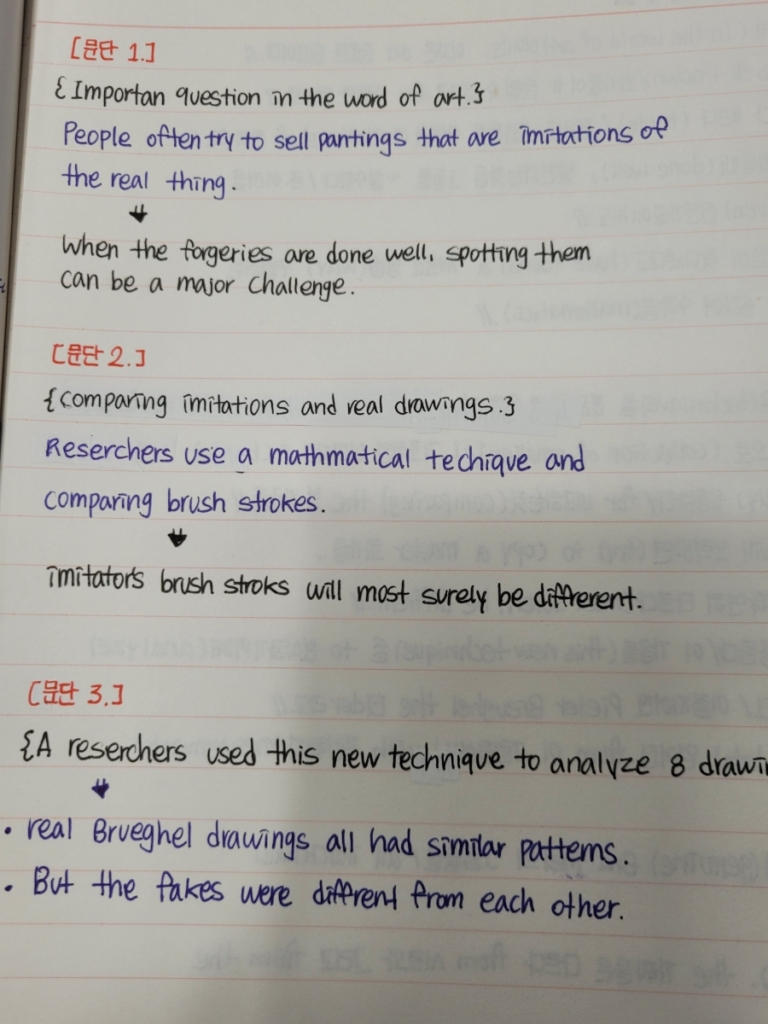 [문단 1.]
{Importan question in the word of art.}
People often try to sell pantings that are imitations of
the real thing.
↓
When the forgeries are done well, spotting them
can be a major challenge.
[문단 2.]
{comparing imitations and real drawings.}
Reserchers use a mathmatical techique and
comparing brush strokes.
↓
imitator's brush stroks will most surely be different.
[문단 3.]
{A reserchers used this new technique to analyze 8 drawin
↓
• real Brueghel drawings all had similar patterns.
• But the fakes were different from each other.